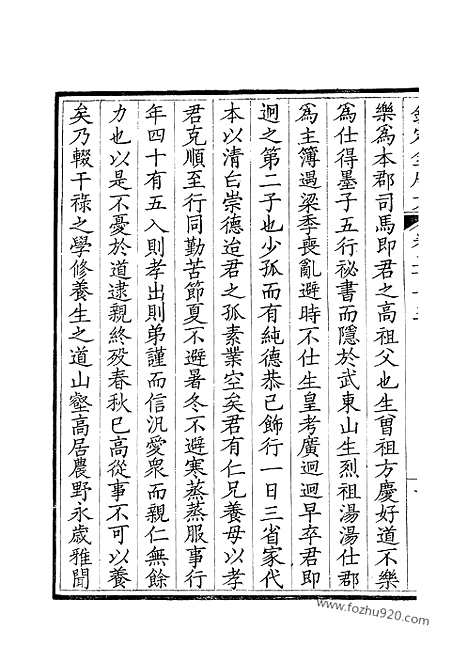 樂為本郡司馬即君之高祖父也生曽祖方慶好道不樂
為仕得墨子五行祕書而隱於武東山生烈祖湯湯仕郡
為主簿遇梁季喪亂避時不仕生皇考廣迥迥早卒君即
迥之第二子也少孤而有純德恭已飾行一日三省家代
本以清白崇德迨君之孤素業空矣君有仁兄養母以孝
君克順至行同勤苦節夏不避暑冬不避寒蒸蒸服事行
年四十有五入則孝出則弟謹而信汎愛衆而親仁無餘
力也以是不憂於道逮親終殁春秋已高從事不可以養
矣乃輟干祿之學修養生之道山壑高居農野永歳雅聞
www.fozhu920.com